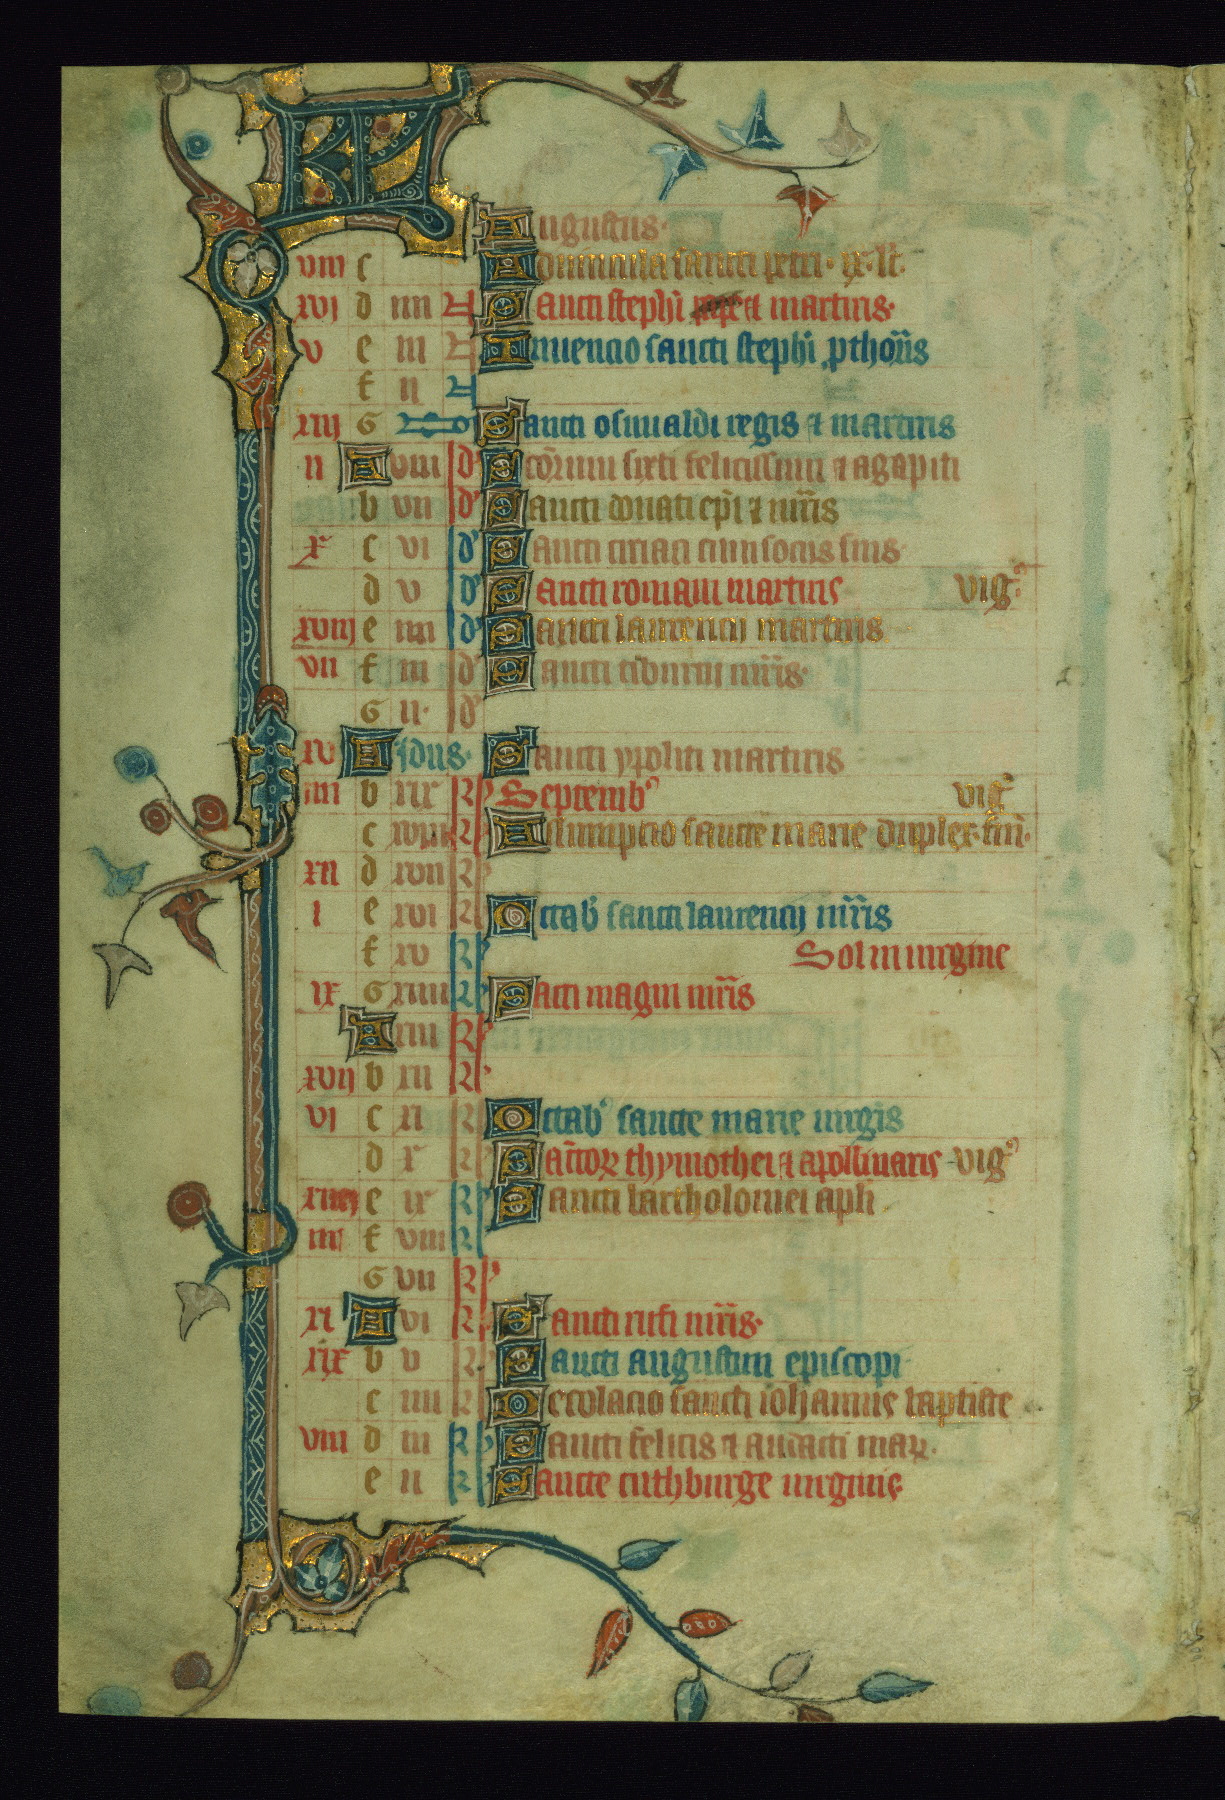 KL
Augustus.
viii c Advincula sancti petri. ix. lc̄.
xvi d iiii N Sancti stephi pape ⁊ martiris.
v e iii N Inuencio sancti stephi ꝓthom̄is
f ii N
xiii G No Sancti oswaldi regis ⁊ martiris
ii A viii Id' Scōrum sixti felicissimi ⁊ agapiti
b vii Id' Sancti donati ep̄i ⁊ mr̄is
x c vi Id' Sancti ciriaci cum sociis suis.
d v Id' Sancti romani martiris vig'.
xviii e iiii Id' Sancti laurencij martiris
vii f iii Id' Sancti tiburcij mr̄is.
G ii. Id'
xv A Idus. Sancti ypoliti martiris
iiii b xix Kl' Septemb' vig'
c xviii Kl' Assumpcio sancte marie duplex. fm̄.
xii d xvii Kl'
i e xvi Kl' Octab' sancti laurencij mr̄is
f xv Kl' Sol in uirgine
ix G xiiii Kl' Sancti magni mr̄is
A xiii Kl'
xvii b xii Kl'
vi c xi Kl' Octab' sancte marie uirgīs
d x Kl' Sanctoꝝ thymothei ⁊ apollinaris vig'
xiiii e ix Kl' Sancti bartholomei apl̄i
iii f viii Kl'
G vii Kl'
xi A vi Kl' Sancti rufi mr̄is.
xix b v Kl' Sancti augustini episcopi
c iiii Kl' Decolacio sancti iohannis baptiste
viii d iii Kl' Sancti felicis ⁊ audacti maꝝ.
e ii Kl' Sancte cuthburge uirginis